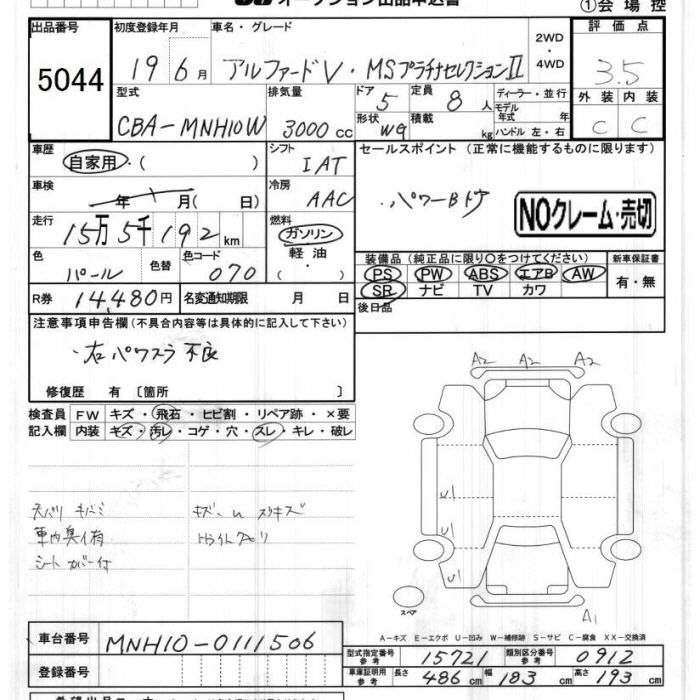 オークション出品申込書
①会場控
出品番号 初度登録年月 車名・グレード 2WD・4WD 評価点
5044 19 6月 アルファードV・MSプラチナセレクションII 3.5
型式 排気量 ドア 5 定員 8人 ディーラー・並行 外装 内装
CBA-MNH10W 3000cc 形状 WG 積載 kg モデル年式 年 ハンドル 左・右 C C
車歴 自家用・( ) シフト IAT セールスポイント (正常に機能するものに限ります)
車検 年 月( 日) 冷房 AAC ・パワーBドア NOクレーム・売切
走行 15万5千192km 燃料 ガソリン 軽油・( )
色 パール 色替 色コード 070 装備品(純正品に限り○をつけてください) 新車保証書
PS PW ABS エアB AW 有・無
SR ナビ TV カワ
R券 14,480円 名変通知期限 月 日 後日品
注意事項申告欄(不具合内容等は具体的に記入して下さい)
・右パワスラ不良
修復歴 有〔箇所 〕
A2 A2 A2
検査員 FW キズ・飛石・ヒビ割・リペア跡・×要
記入欄 内装 キズ・汚レ・コゲ・穴・スレ・キレ・破レ
U1
U1
車内臭イ有
シートカバー付
U1
スペア
A1
A-キズ E-エクボ U-凹み W-補修跡 S-サビ C-腐食 XX-交換済
車台番号 MNH10-0111506
型式指定番号 参考 15721 類別区分番号 参考 0912
登録番号 車庫証明用 参考 長さ 486cm 幅 183cm 高さ 193cm